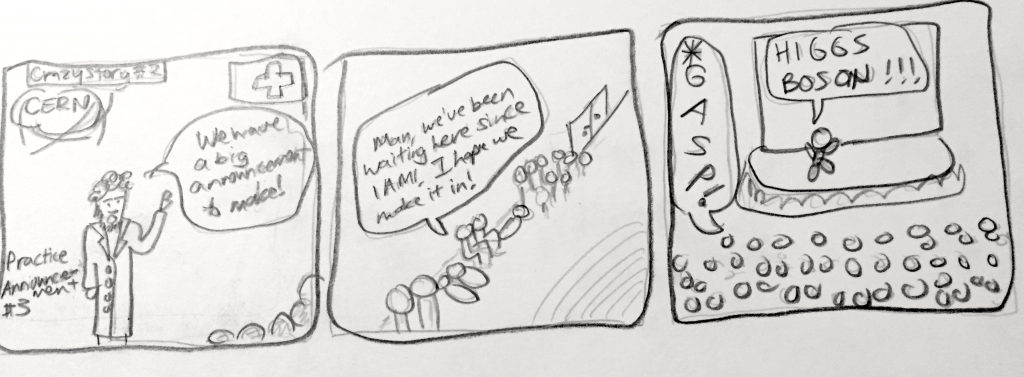 Crazy Story #2
CERN
We have
a big
announcement
to make!
Practice
Announce-
ment
#3
Man, we've been
waiting here since
1 AM!, I hope we
make it in!
*GASP!*
HIGGS
BOSON!!!